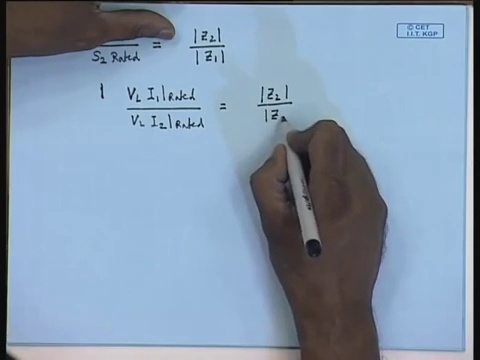 © CET
I.I.T. KGP
S₂ Rated = |Z₂| / |Z₁|
V_L I₁|Rated / V_L I₂|Rated = |Z₂| / |Z